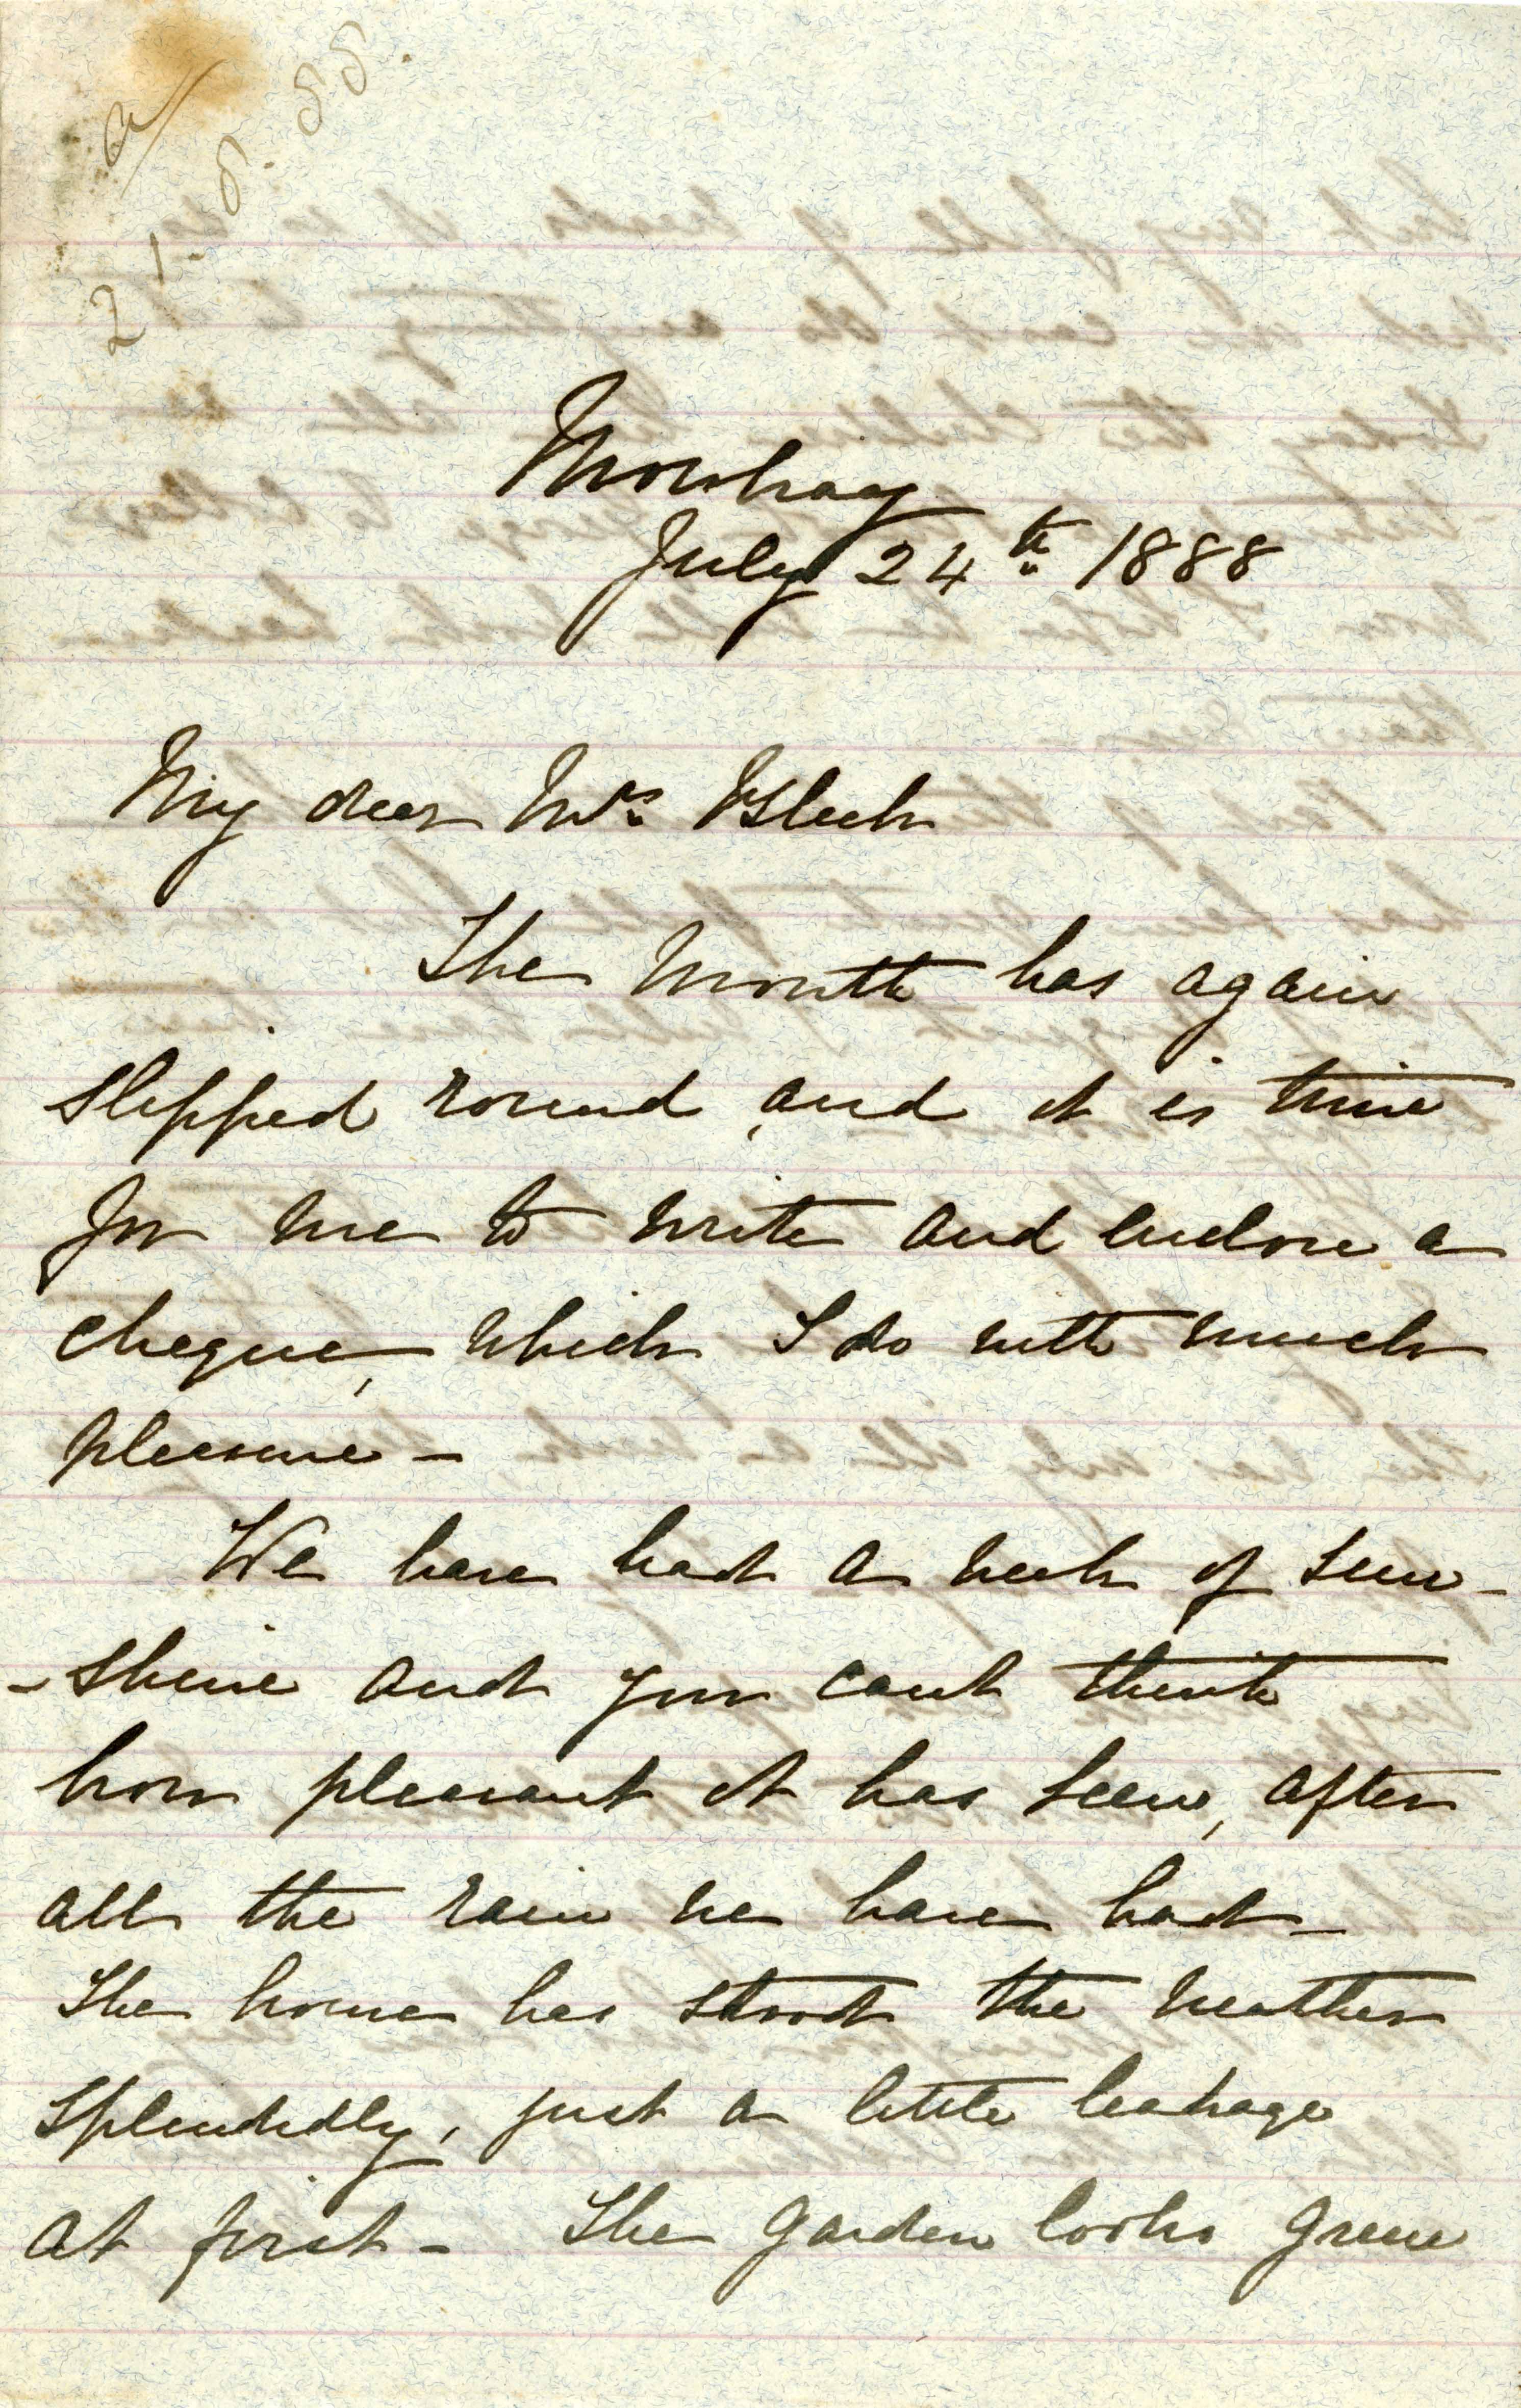 a/
21.8.88.
Mowbray
July 24th 1888
My dear Mrs Bleek
The month has again
slipped round, and it is time
for me to write and enclose a
cheque, which I do with much
pleasure -
We have had a week of sun-
-shine and you cant think
how pleasant it has been, after
all the rain we have had -
The house has stood the weather
splendidly, just a little leakage
at first - The garden looks green